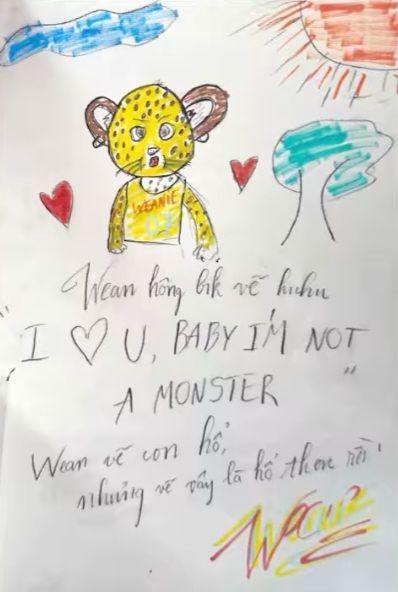 WEANIE
Wean hông bik vẽ huhu
"I ♡ U, BABY I'M NOT
A MONSTER"
Wean vẽ con hổ,
nhưng vẽ vậy là hổ then rồi